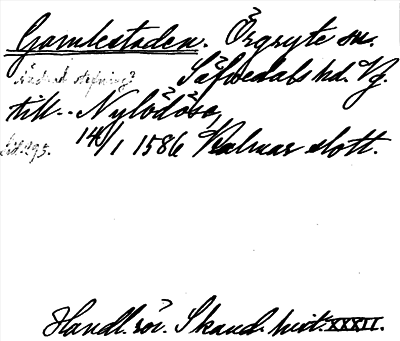 Gamlestaden. Örgryte sn.
Ändrad stafning? Säfvedals hd. Vg.
till Nylödöse,
Sid. 295. 14/1 1586 Kalmar slott.
Handl. rör. Skand. hist. XXXII.